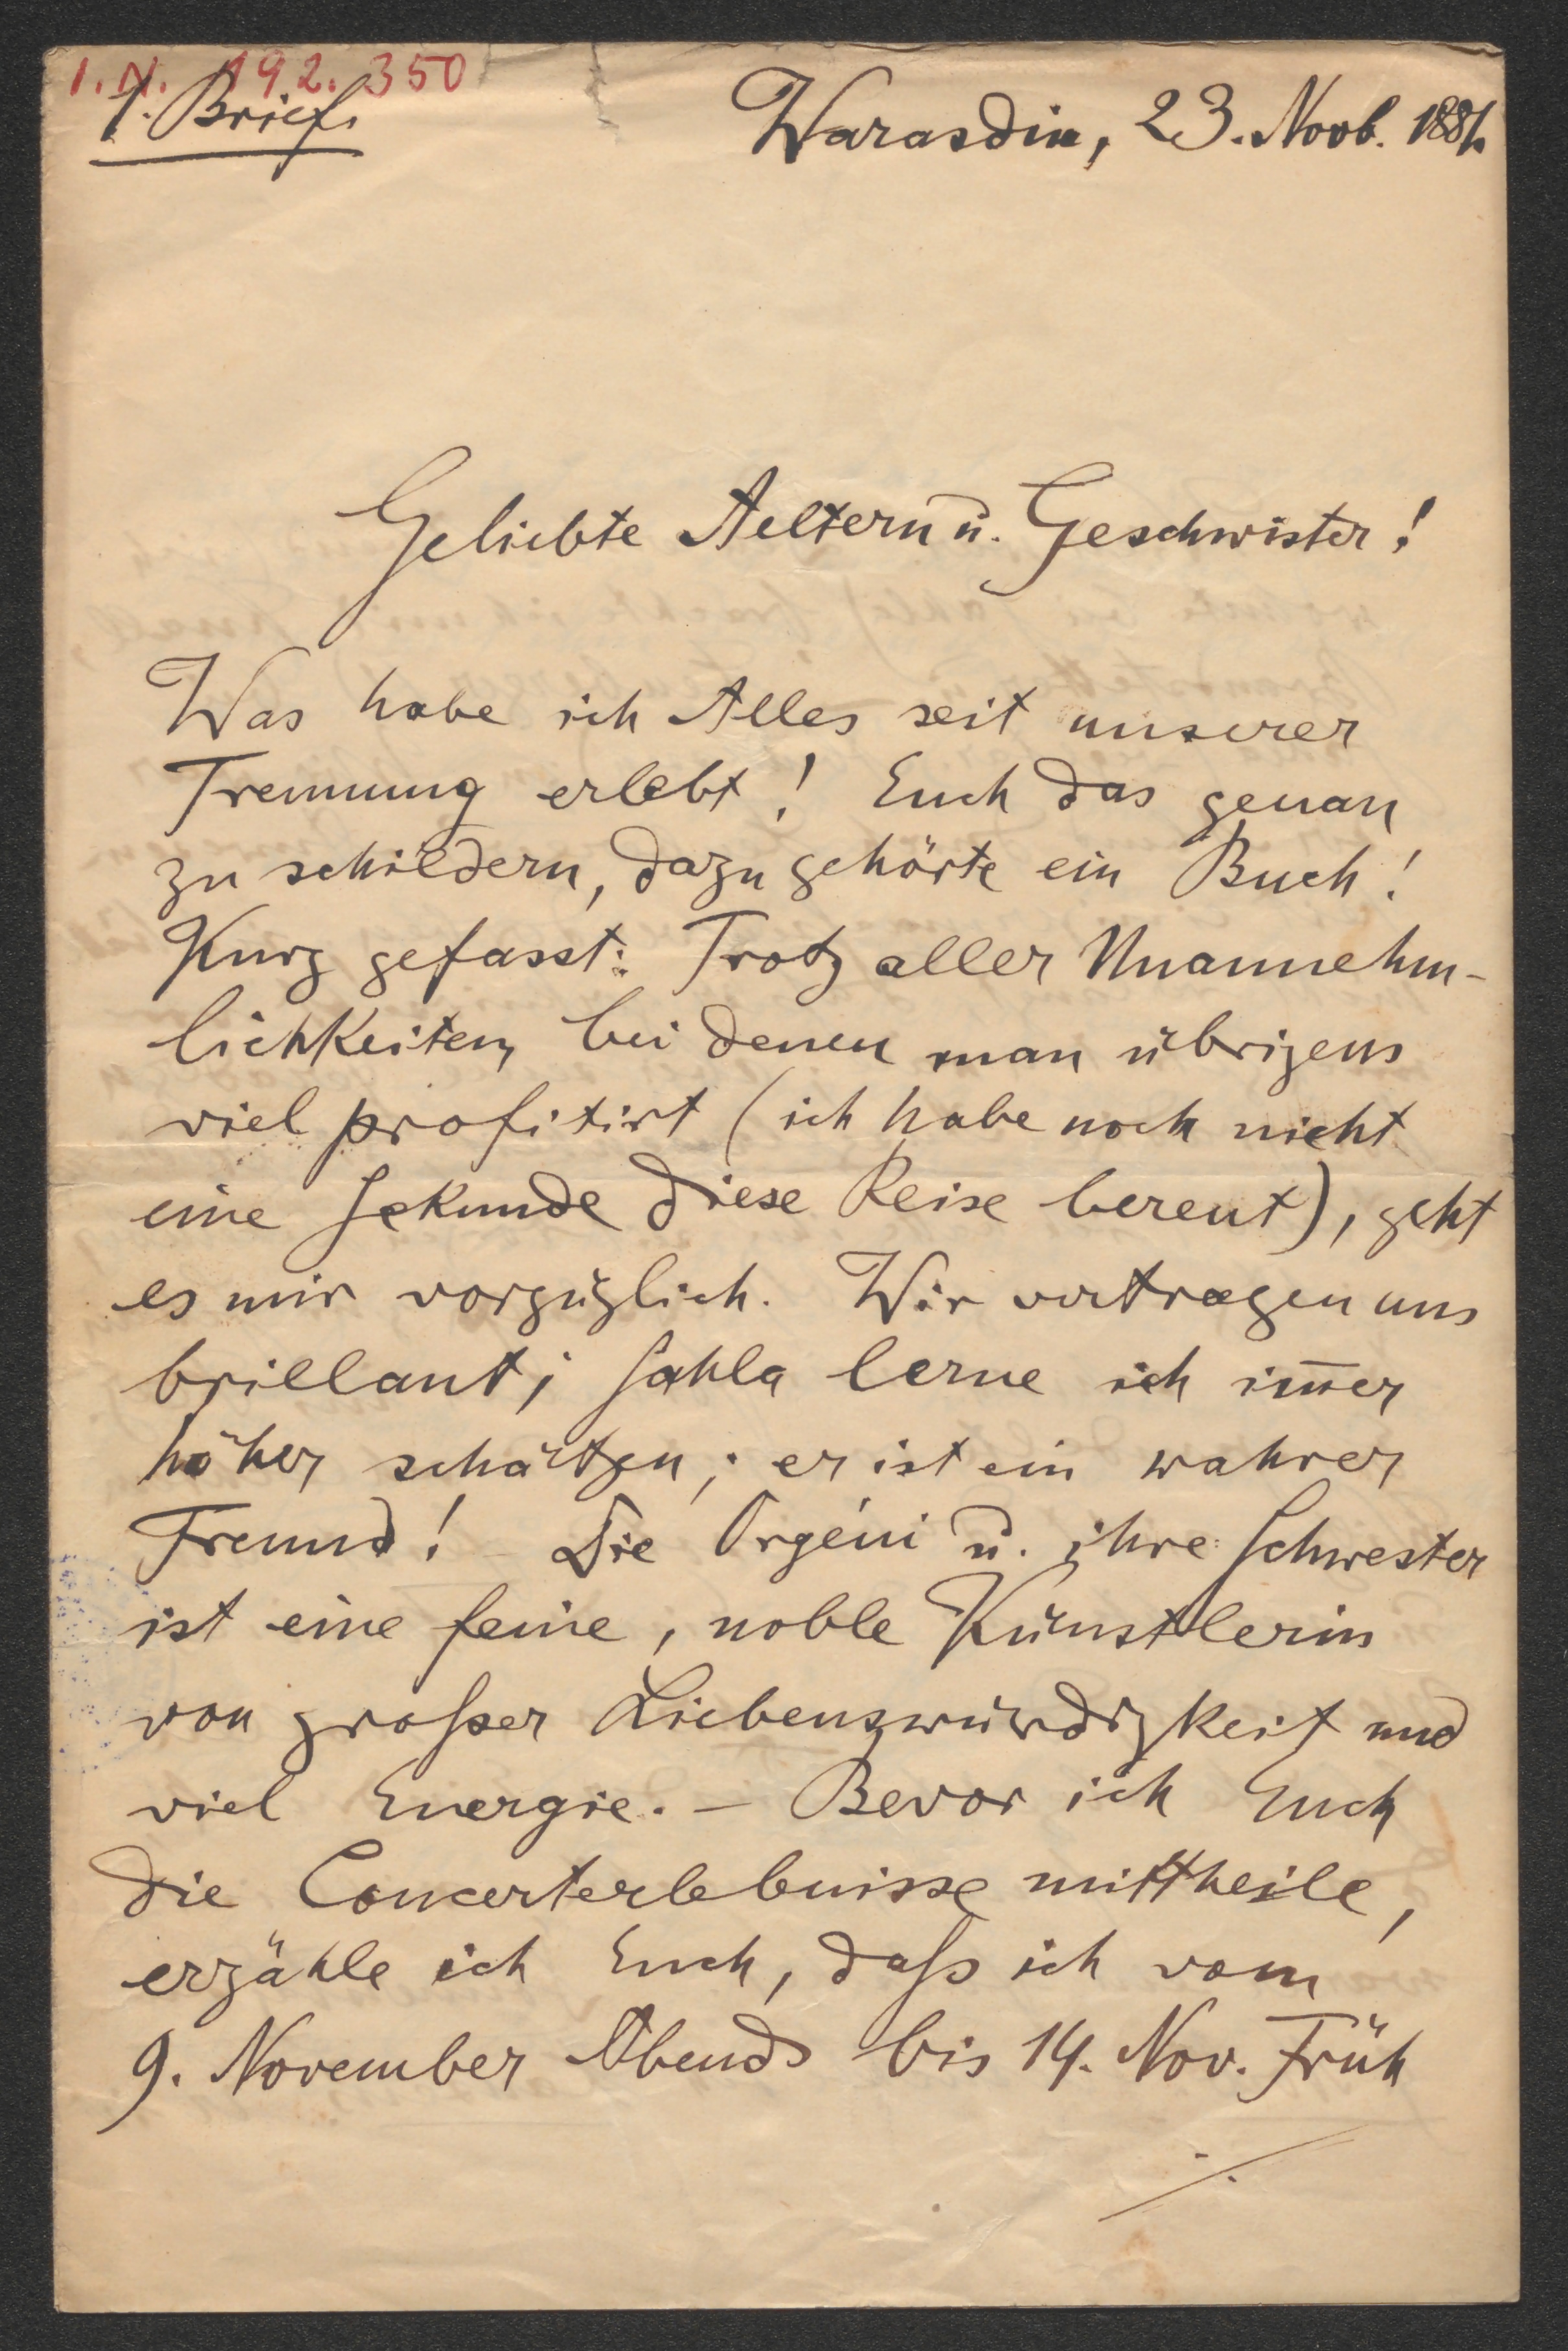 I.N. 192.350
1. Brief.
Warasdin, 23. Novb. 1881.
Geliebte Aeltern u. Geschwister!
Was habe ich Alles seit unserer
Trennung erlebt! Euch das genau
zu schildern, dazu gehörte ein Buch!
Kurz gefasst: Trotz aller Unannehm-
lichkeiten, bei denen man übrigens
viel profitirt (ich habe noch nicht
eine Sekunde diese Reise bereut), geht
es mir vorzüglich. Wir vertragen uns
brillant; Sahla lerne ich im̅er
höher schätzen; er ist ein wahrer
Freund! Die Orgéni u. ihre Schwester
ist eine feine, noble Künstlerin
von großer Liebenswürdigkeit und
viel Energie. – Bevor ich Euch
die Concerterlebnisse mittheile,
erzähle ich Euch, daß ich vom
9. November Abends bis 14. Nov. Früh
./.